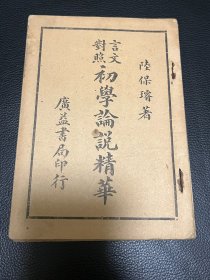 陸保璿著
言文對照
初學論説精華
廣益書局印行